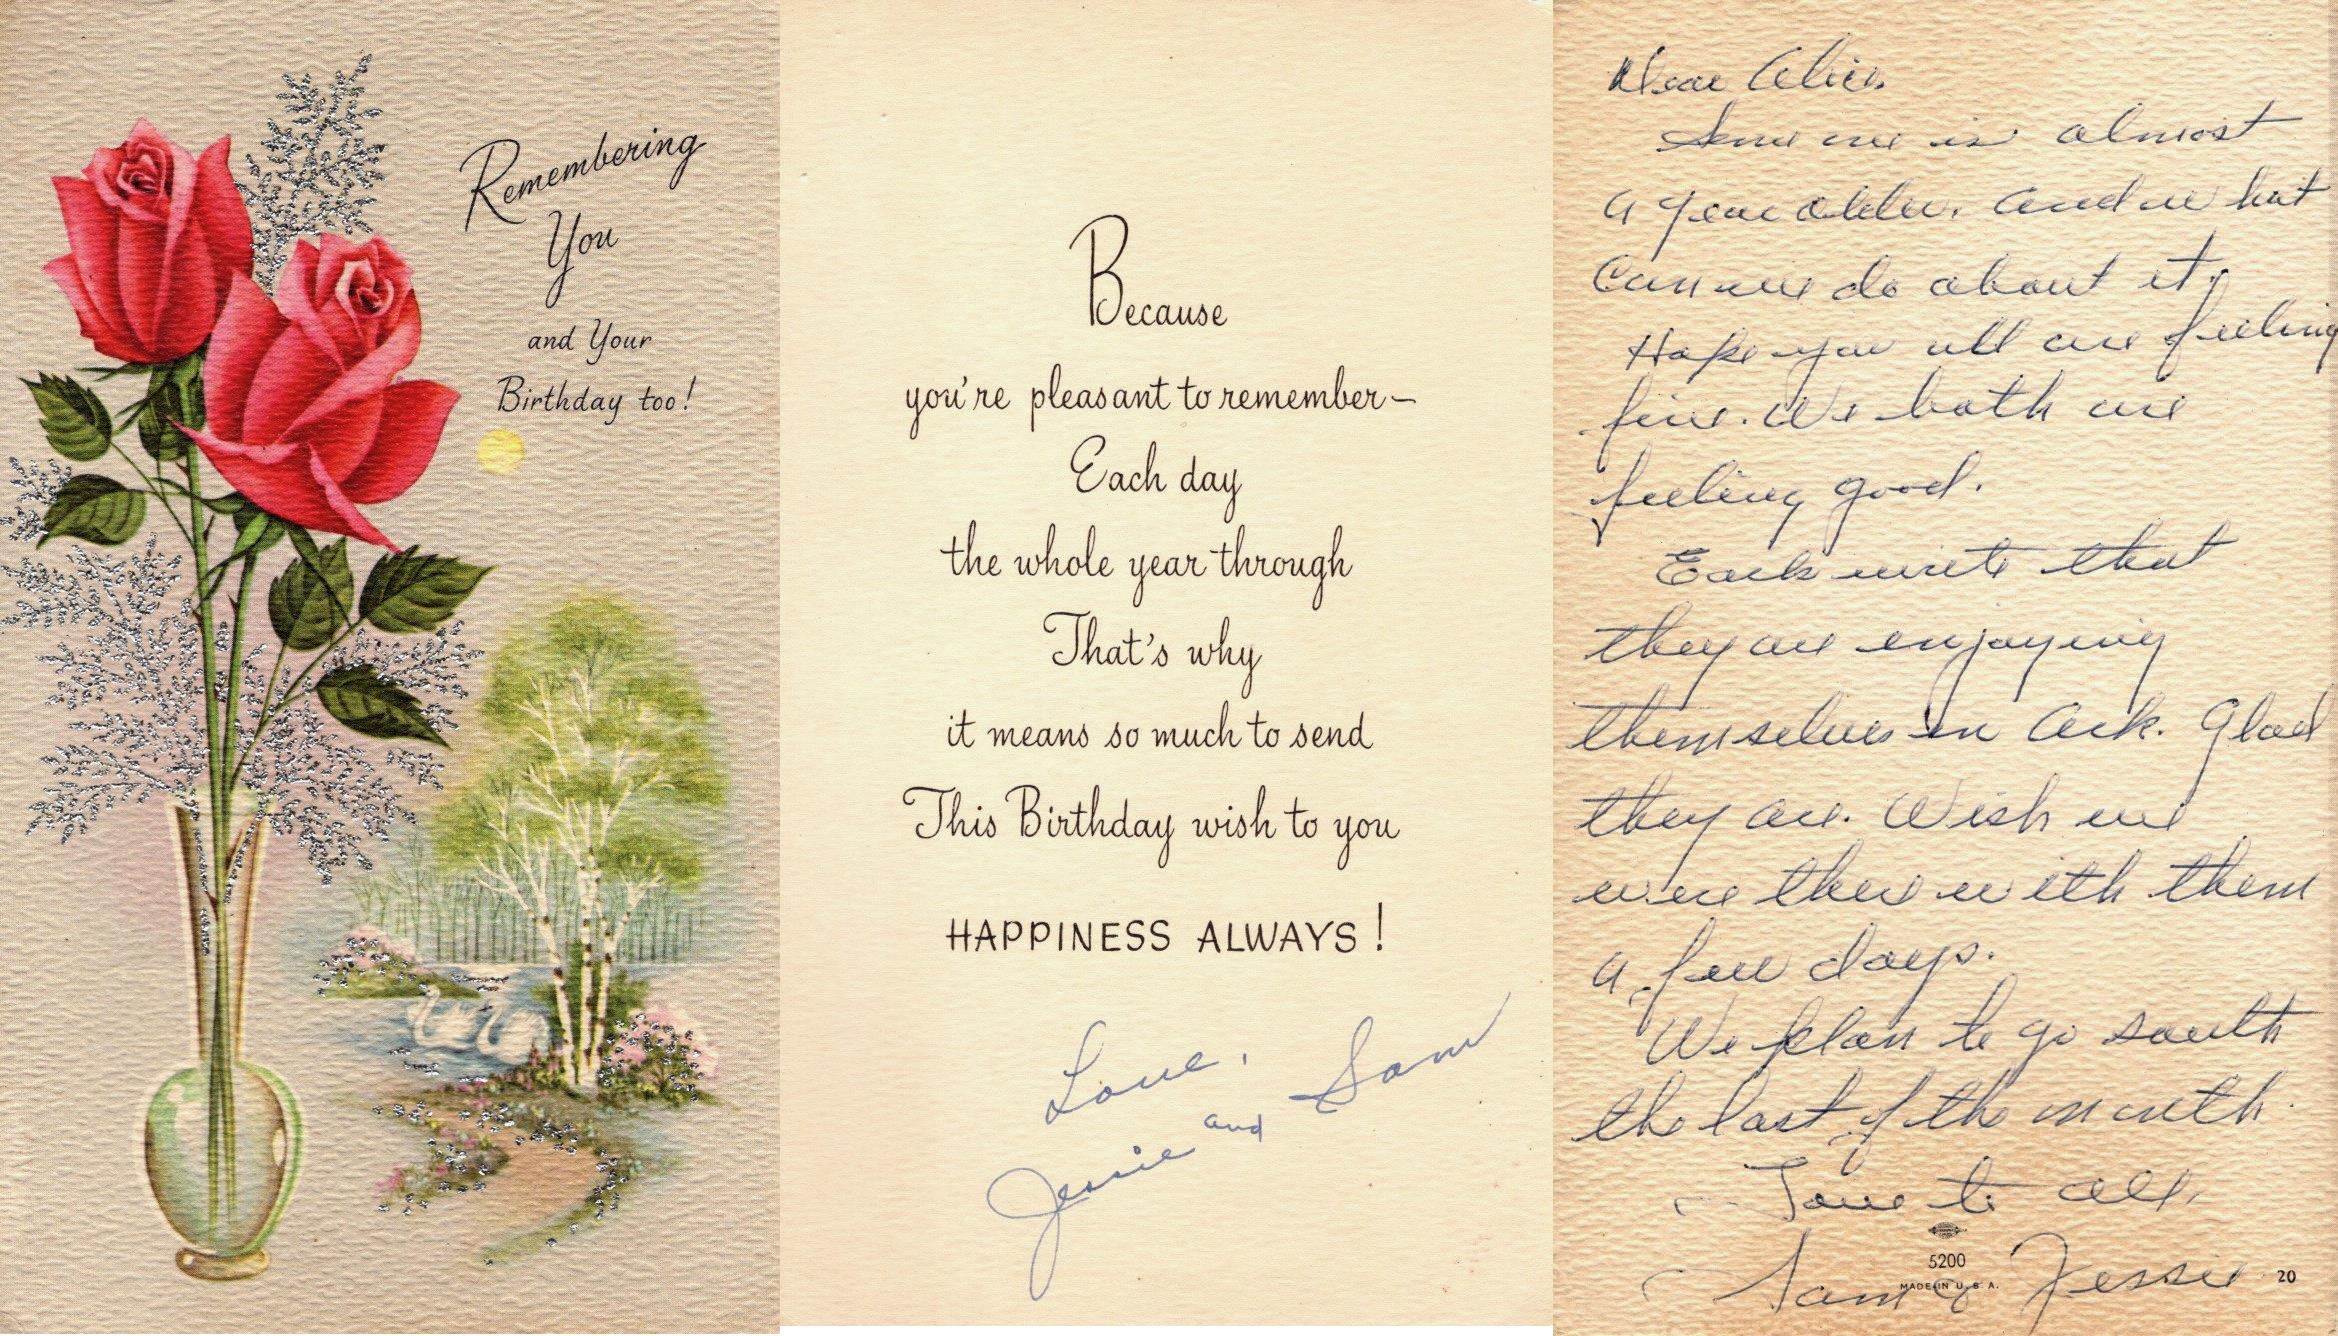 Remembering
You
and Your
Birthday too!
Because
you're pleasant to remember—
Each day
the whole year through
That's why
it means so much to send
This Birthday wish to you
HAPPINESS ALWAYS!
Love,
Jessie and Sam
Dear Alice.
Some one is almost
a year older. And what
can we do about it.
Hope you all are feeling
fine. We both are
feeling good.
write that
they are enjoying
themselves in Ark. Glad
they are. Wish we
were there with them
a few days.
We plan to go south
the last of the month.
Love to all,
Sam & Jessie
5200
MADE IN U.S.A.
20